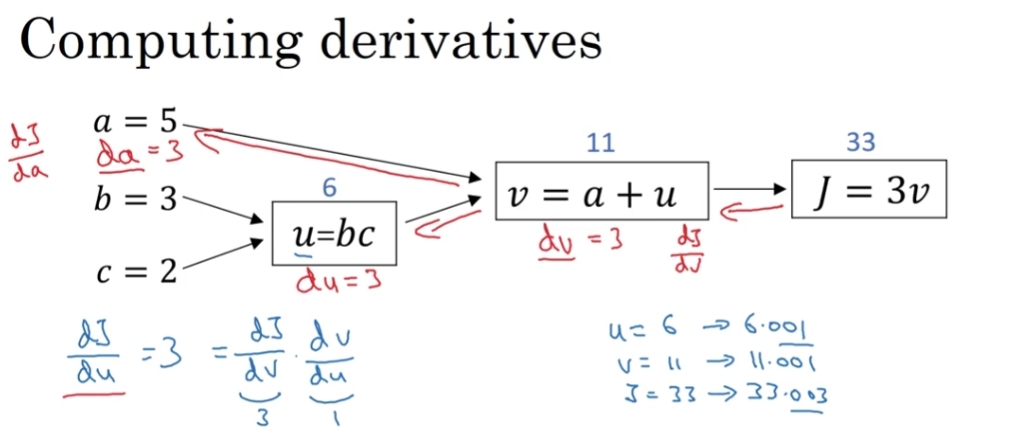 Computing derivatives
a = 5
dJ/da
da = 3
b = 3
c = 2
6
u=bc
du = 3
11
v = a + u
dv = 3
dJ/dv
33
J = 3v
dJ/du = 3 = dJ/dv · dv/du
3 1
u = 6 → 6.001
v = 11 → 11.001
J = 33 → 33.003